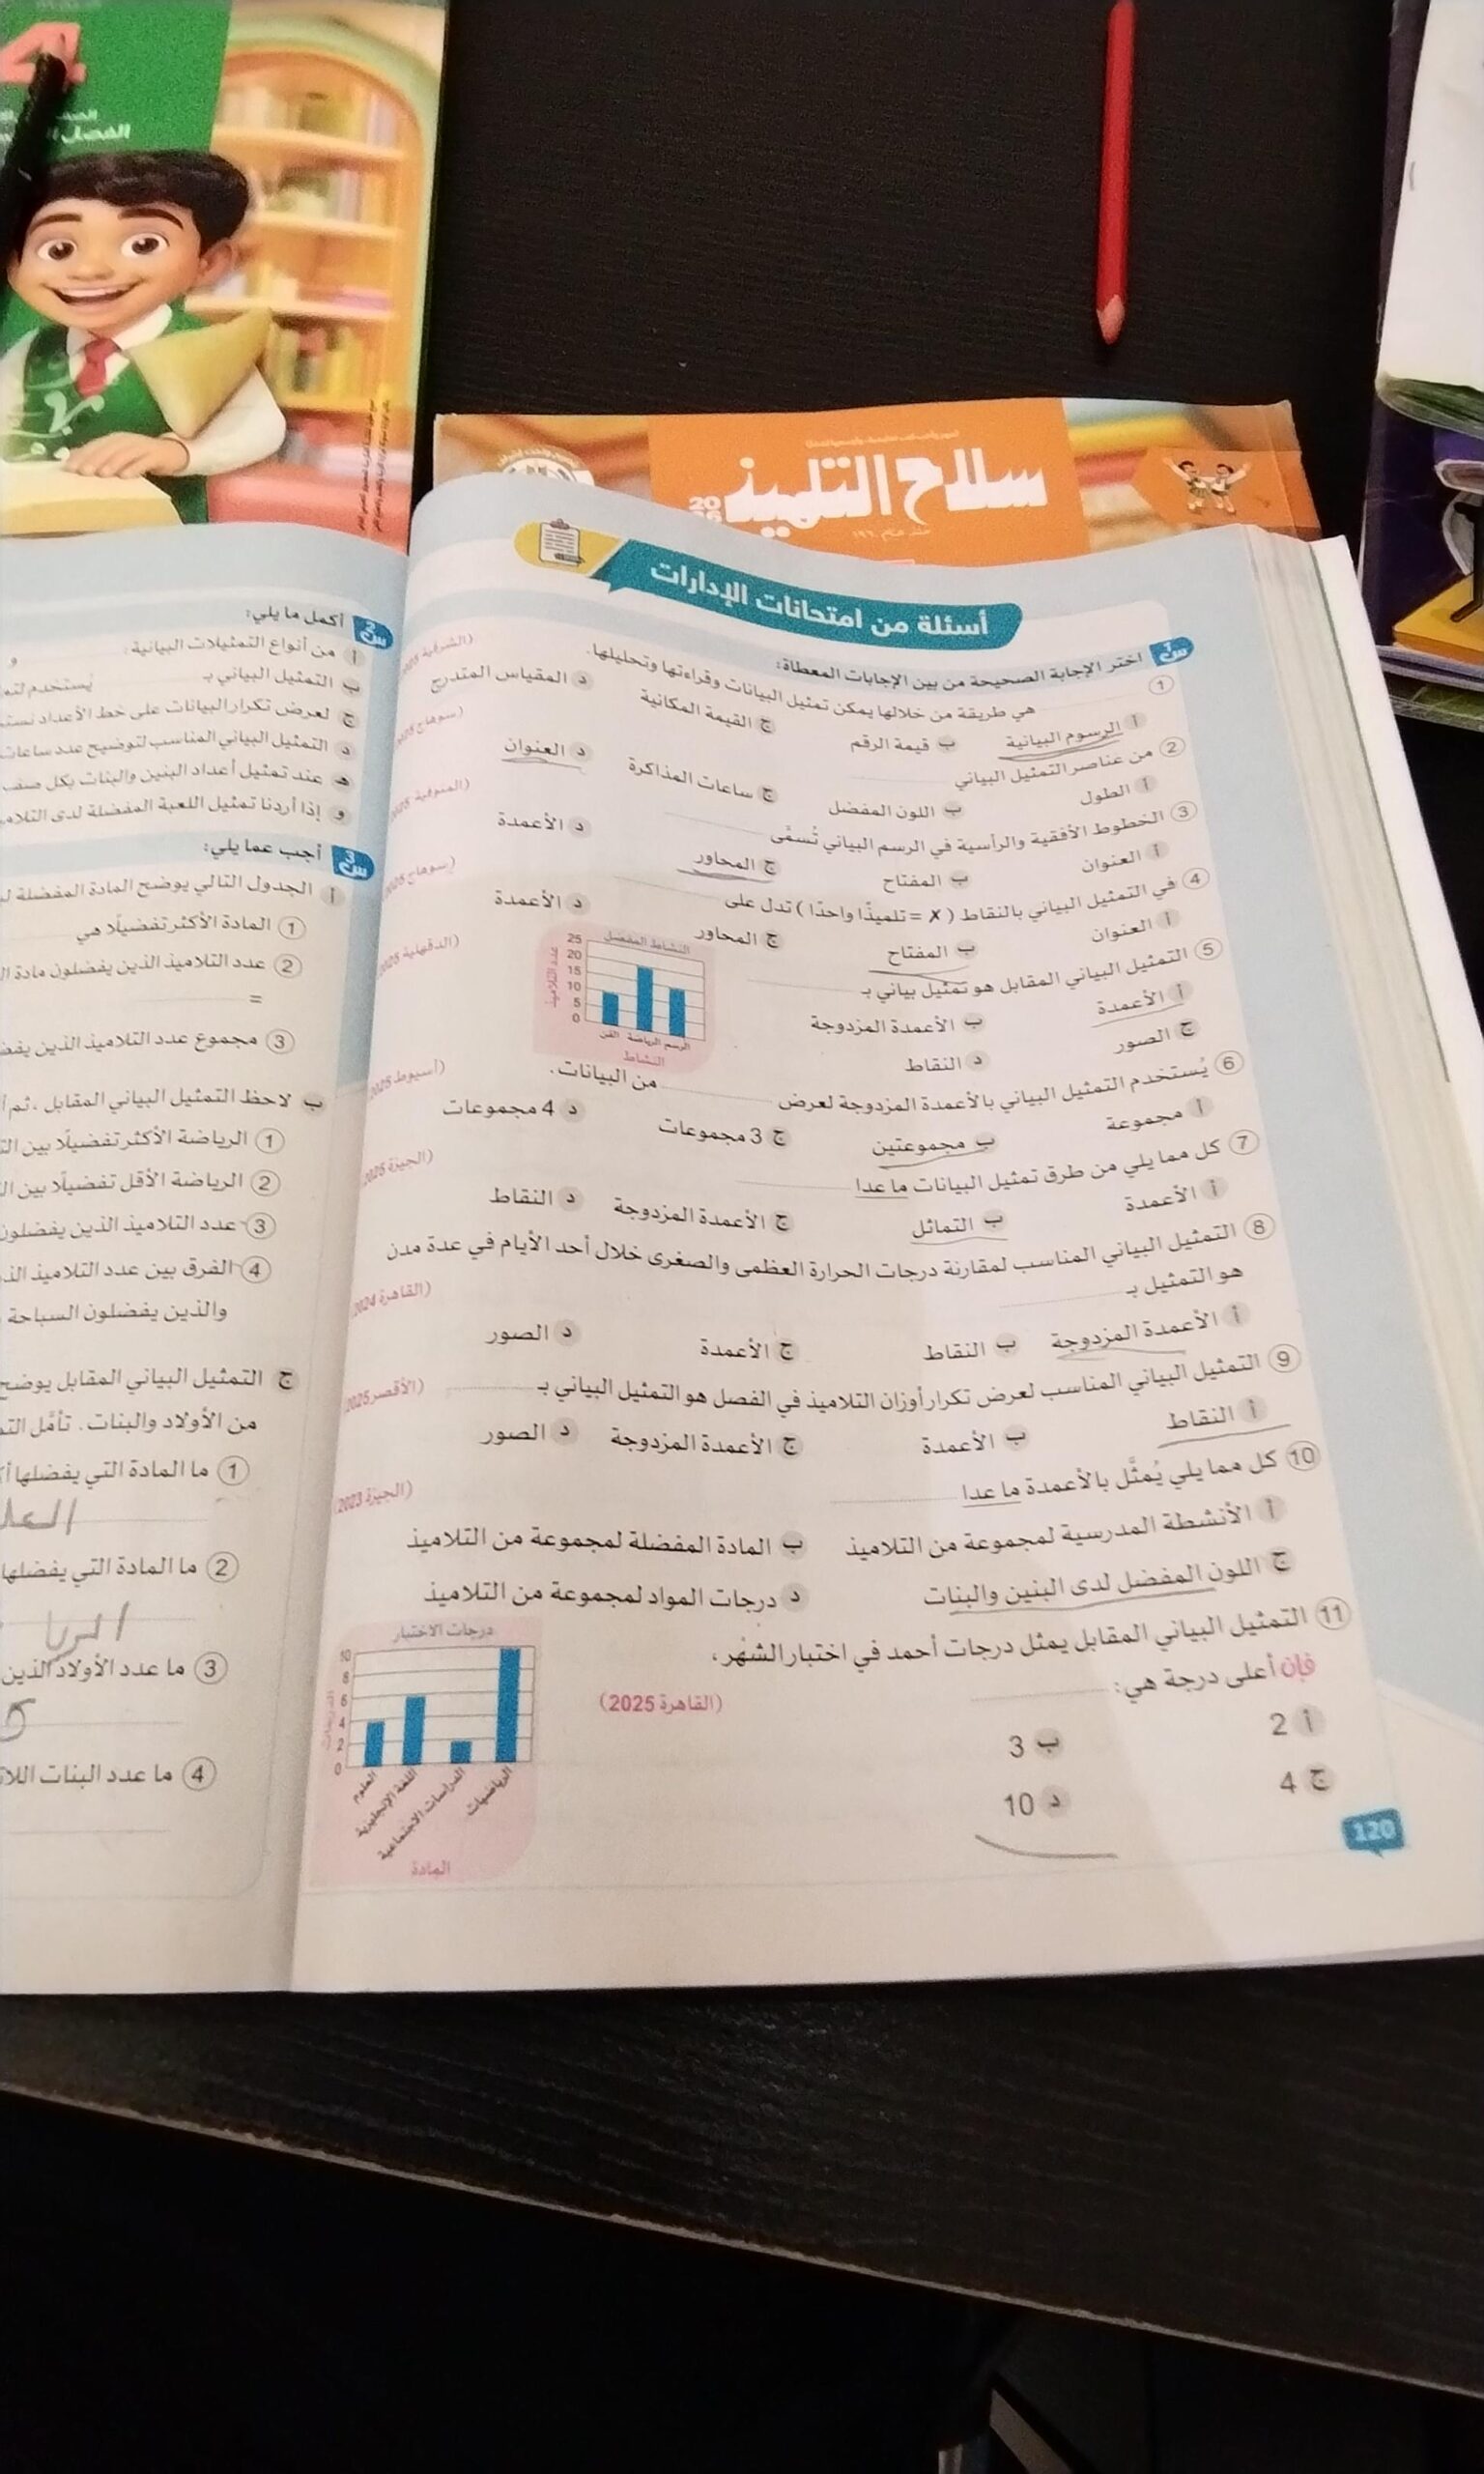 4
الفصل
سلاح التلميذ
20
أسئلة من امتحانات الإدارات
س1 اختر الإجابة الصحيحة من بين الإجابات المعطاة:
1 هي طريقة من خلالها يمكن تمثيل البيانات وقراءتها وتحليلها. (الشرقية 2025)
أ الرسوم البيانية ب قيمة الرقم ج القيمة المكانية د المقياس المتدرج
2 من عناصر التمثيل البياني (سوهاج 2025)
أ الطول ب اللون المفضل ج ساعات المذاكرة د العنوان
3 الخطوط الأفقية والرأسية في الرسم البياني تُسمَّى (المنوفية 2025)
أ العنوان ب المفتاح ج المحاور د الأعمدة
4 في التمثيل البياني بالنقاط ( ✗ = تلميذًا واحدًا ) تدل على (سوهاج 2025)
أ العنوان ب المفتاح ج المحاور د الأعمدة
5 التمثيل البياني المقابل هو تمثيل بياني بـ (الدقهلية 2025)
أ الأعمدة ب الأعمدة المزدوجة
ج الصور د النقاط
النشاط المفضل
عدد التلاميذ
25
20
15
10
5
0
الفن الرياضة الرسم
النشاط
6 يُستخدم التمثيل البياني بالأعمدة المزدوجة لعرض من البيانات. (أسيوط 2025)
أ مجموعة ب مجموعتين ج 3 مجموعات د 4 مجموعات
7 كل مما يلي من طرق تمثيل البيانات ما عدا (الجيزة 2025)
أ الأعمدة ب التماثل ج الأعمدة المزدوجة د النقاط
8 التمثيل البياني المناسب لمقارنة درجات الحرارة العظمى والصغرى خلال أحد الأيام في عدة مدن
هو التمثيل بـ (القاهرة 2024)
أ الأعمدة المزدوجة ب النقاط ج الأعمدة د الصور
9 التمثيل البياني المناسب لعرض تكرار أوزان التلاميذ في الفصل هو التمثيل البياني بـ (الأقصر 2025)
أ النقاط ب الأعمدة ج الأعمدة المزدوجة د الصور
10 كل مما يلي يُمثَّل بالأعمدة ما عدا (الجيزة 2023)
أ الأنشطة المدرسية لمجموعة من التلاميذ ب المادة المفضلة لمجموعة من التلاميذ
ج اللون المفضل لدى البنين والبنات د درجات المواد لمجموعة من التلاميذ
11 التمثيل البياني المقابل يمثل درجات أحمد في اختبار الشهر،
فإن أعلى درجة هي: (القاهرة 2025)
أ 2 ب 3
ج 4 د 10
درجات الاختبار
10
8
6
4
2
0
العلوم
اللغة الإنجليزية
الدراسات الاجتماعية
الرياضيات
المادة
120
س2 أكمل ما يلي:
أ من أنواع التمثيلات البيانية: و
ب التمثيل البياني بـ يستخدم
ج لعرض تكرار البيانات على خط الأعداد
د التمثيل البياني المناسب لتوضيح عدد ساعات
هـ عند تمثيل أعداد البنين والبنات بكل صف
و إذا أردنا تمثيل اللعبة المفضلة لدى
س3 أجب عما يلي:
أ الجدول التالي يوضح المادة المفضلة
1 المادة الأكثر تفضيلًا هي
2 عدد التلاميذ الذين يفضلون مادة
=
3 مجموع عدد التلاميذ الذين
ب لاحظ التمثيل البياني المقابل، ثم
1 الرياضة الأكثر تفضيلًا بين
2 الرياضة الأقل تفضيلًا بين
3 عدد التلاميذ الذين يفضلون
4 الفرق بين عدد التلاميذ
والذين يفضلون السباحة
ج التمثيل البياني المقابل يوضح
من الأولاد والبنات. تأمَّل
1 ما المادة التي يفضلها
2 ما المادة التي يفضلها
3 ما عدد الأولاد الذين
4 ما عدد البنات